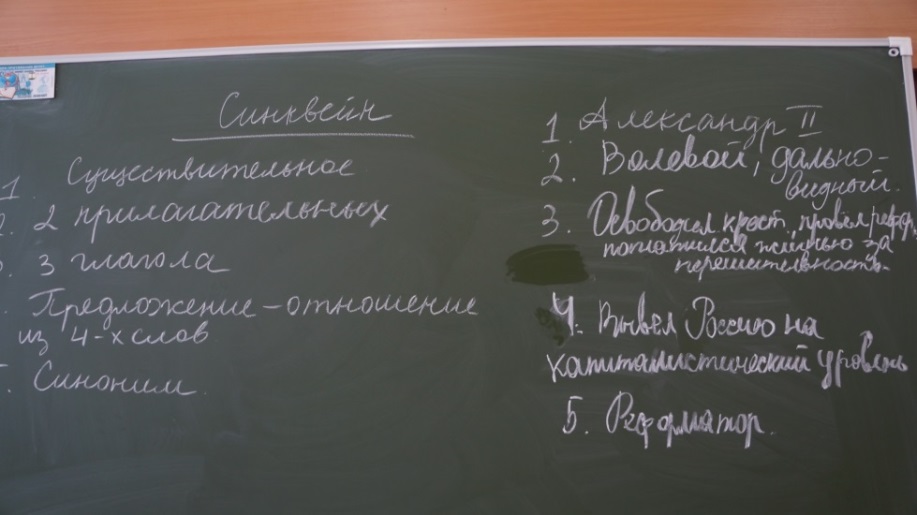 Синквейн
1. Существительное
2. 2 прилагательных
3. 3 глагола
. Предложение – отношение
из 4-х слов
. Синоним.
1. Александр II
2. Волевой, дально-
видный.
3. Освободил крест., провел реф.,
поплатился жизнью за
нерешительность.
4. Вывел Россию на
капиталистический уровень
5. Реформатор.